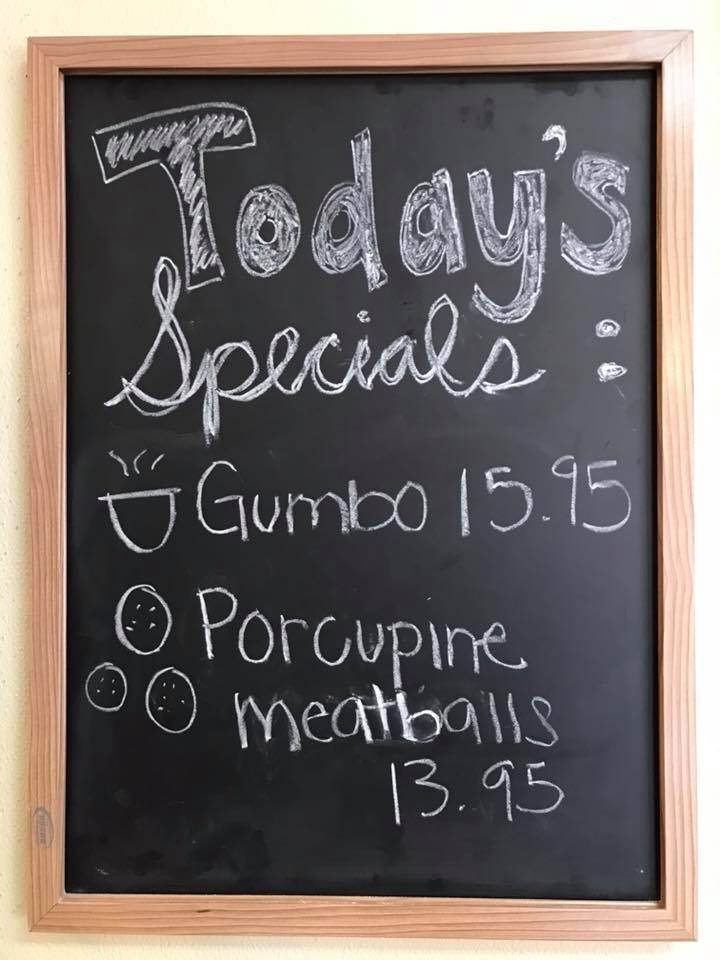 Today's
Specials:
Gumbo 15.95
Porcupine
meatballs
13.95